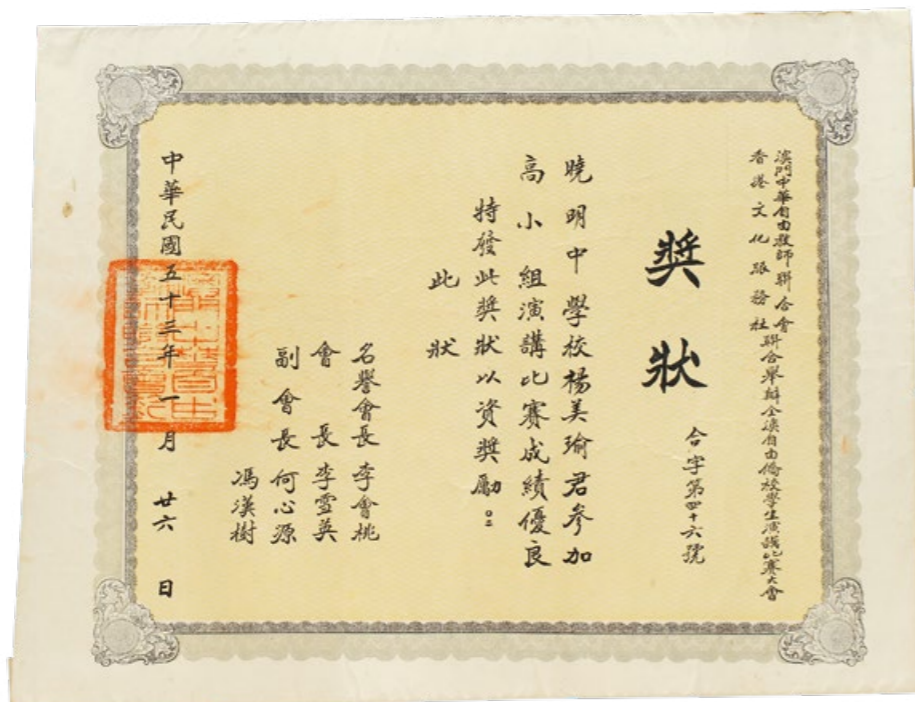 澳門中華自由教師聯合會
香港文化服務社
聯合舉辦全澳自由僑校學生演講比賽大會
獎狀
合字第四十六號
曉明中學校楊美瑜君參加
高小組演講比賽成績優良
特發此獎狀以資獎勵。
此狀
名譽會長李會桃
會長李雪英
副會長何心源
馮漢樹
中華民國五十三年一月廿六日